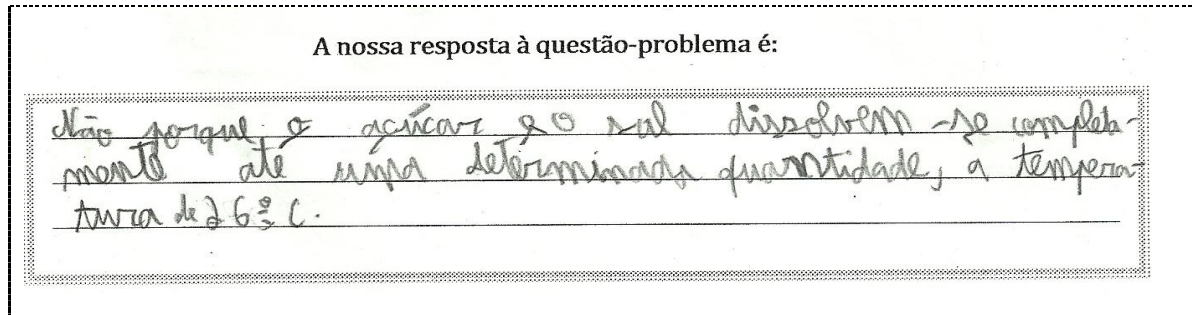 A nossa resposta à questão-problema é:
Não porque o açúcar e o sal dissolvem-se completa-
mente até uma determinada quantidade, à tempera-
tura de 26º C.